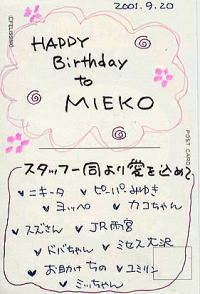 2001.9.20
HAPPY
Birthday
to
MIEKO
POST CARD
スタッフ一同より愛を込めて
♥ニキータ ♥ピーパみゆき
♥ヨッペ ♥カコちゃん
♥スズさん ♥JR雨宮
♥ドバちゃん ♥ミセス大沢
♥お助けちの ♥ユミリン
♥ミッちゃん